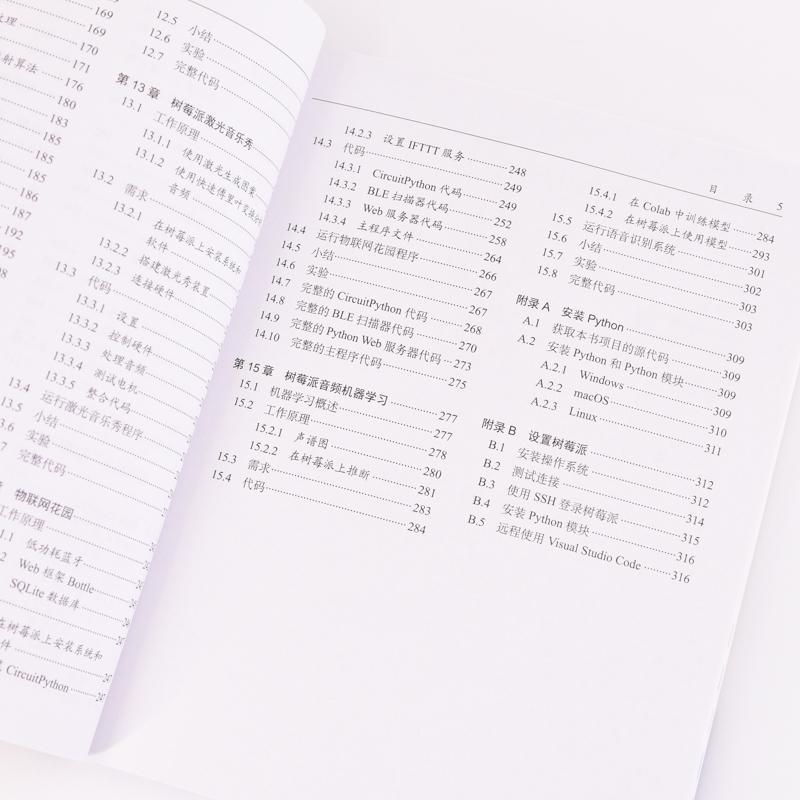 169
169
170
171
射算法 176
180
183
185
185
185
186
187
192
195
12.5 小结
12.6 实验
12.7 完整代码
第13章 树莓派激光音乐秀
13.1 工作原理
13.1.1 使用激光生成图案
13.1.2 使用快速傅里叶变换分析
音频
13.2 需求
13.2.1 在树莓派上安装系统和
软件
13.2.2 搭建激光秀装置
13.2.3 连接硬件
13.3 代码
13.3.1 设置
13.3.2 控制硬件
13.3.3 处理音频
13.3.4 测试电机
13.3.5 整合代码
13.4 运行激光音乐秀程序
13.5 小结
6 实验
7 完整代码
物联网花园
工作原理
1.1 低功耗蓝牙
2 Web 框架 Bottle
SQLite 数据库
在树莓派上安装系统和
件
CircuitPython
目 录 5
14.2.3 设置 IFTTT 服务 248
14.3 代码 249
14.3.1 CircuitPython 代码 249
14.3.2 BLE 扫描器代码 252
14.3.3 Web 服务器代码 258
14.3.4 主程序文件 264
14.4 运行物联网花园程序 266
14.5 小结 267
14.6 实验 267
14.7 完整的 CircuitPython 代码 268
14.8 完整的 BLE 扫描器代码 270
14.9 完整的 Python Web 服务器代码 273
14.10 完整的主程序代码 275
第15章 树莓派音频机器学习 277
15.1 机器学习概述 277
15.2 工作原理 278
15.2.1 声谱图 280
15.2.2 在树莓派上推断 281
15.3 需求 283
15.4 代码 284
15.4.1 在 Colab 中训练模型 284
15.4.2 在树莓派上使用模型 293
15.5 运行语音识别系统 301
15.6 小结 302
15.7 实验 303
15.8 完整代码 303
附录A 安装 Python 309
A.1 获取本书项目的源代码 309
A.2 安装 Python 和 Python 模块 309
A.2.1 Windows 309
A.2.2 macOS 310
A.2.3 Linux 311
附录B 设置树莓派 312
B.1 安装操作系统 312
B.2 测试连接 314
B.3 使用 SSH 登录树莓派 315
B.4 安装 Python 模块 316
B.5 远程使用 Visual Studio Code 316